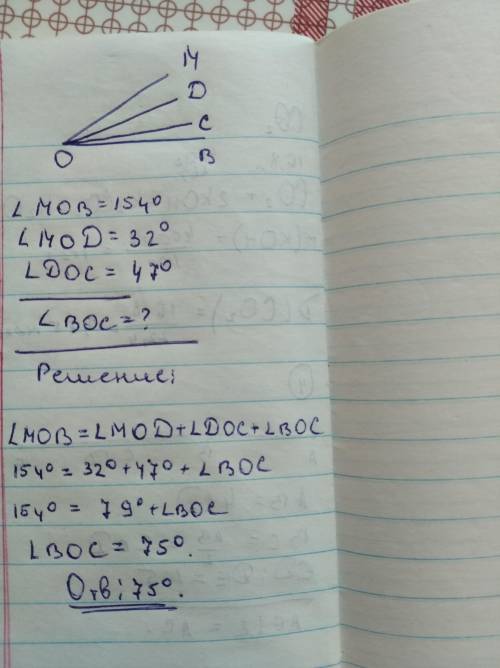 M
D
C
O
B
∠MOB=154°
∠MOD=32°
∠DOC=47°
∠BOC=?
Решение:
∠MOB=∠MOD+∠DOC+∠BOC
154°=32°+47°+∠BOC
154°=79°+∠BOC
∠BOC=75°.
Отв:75°.